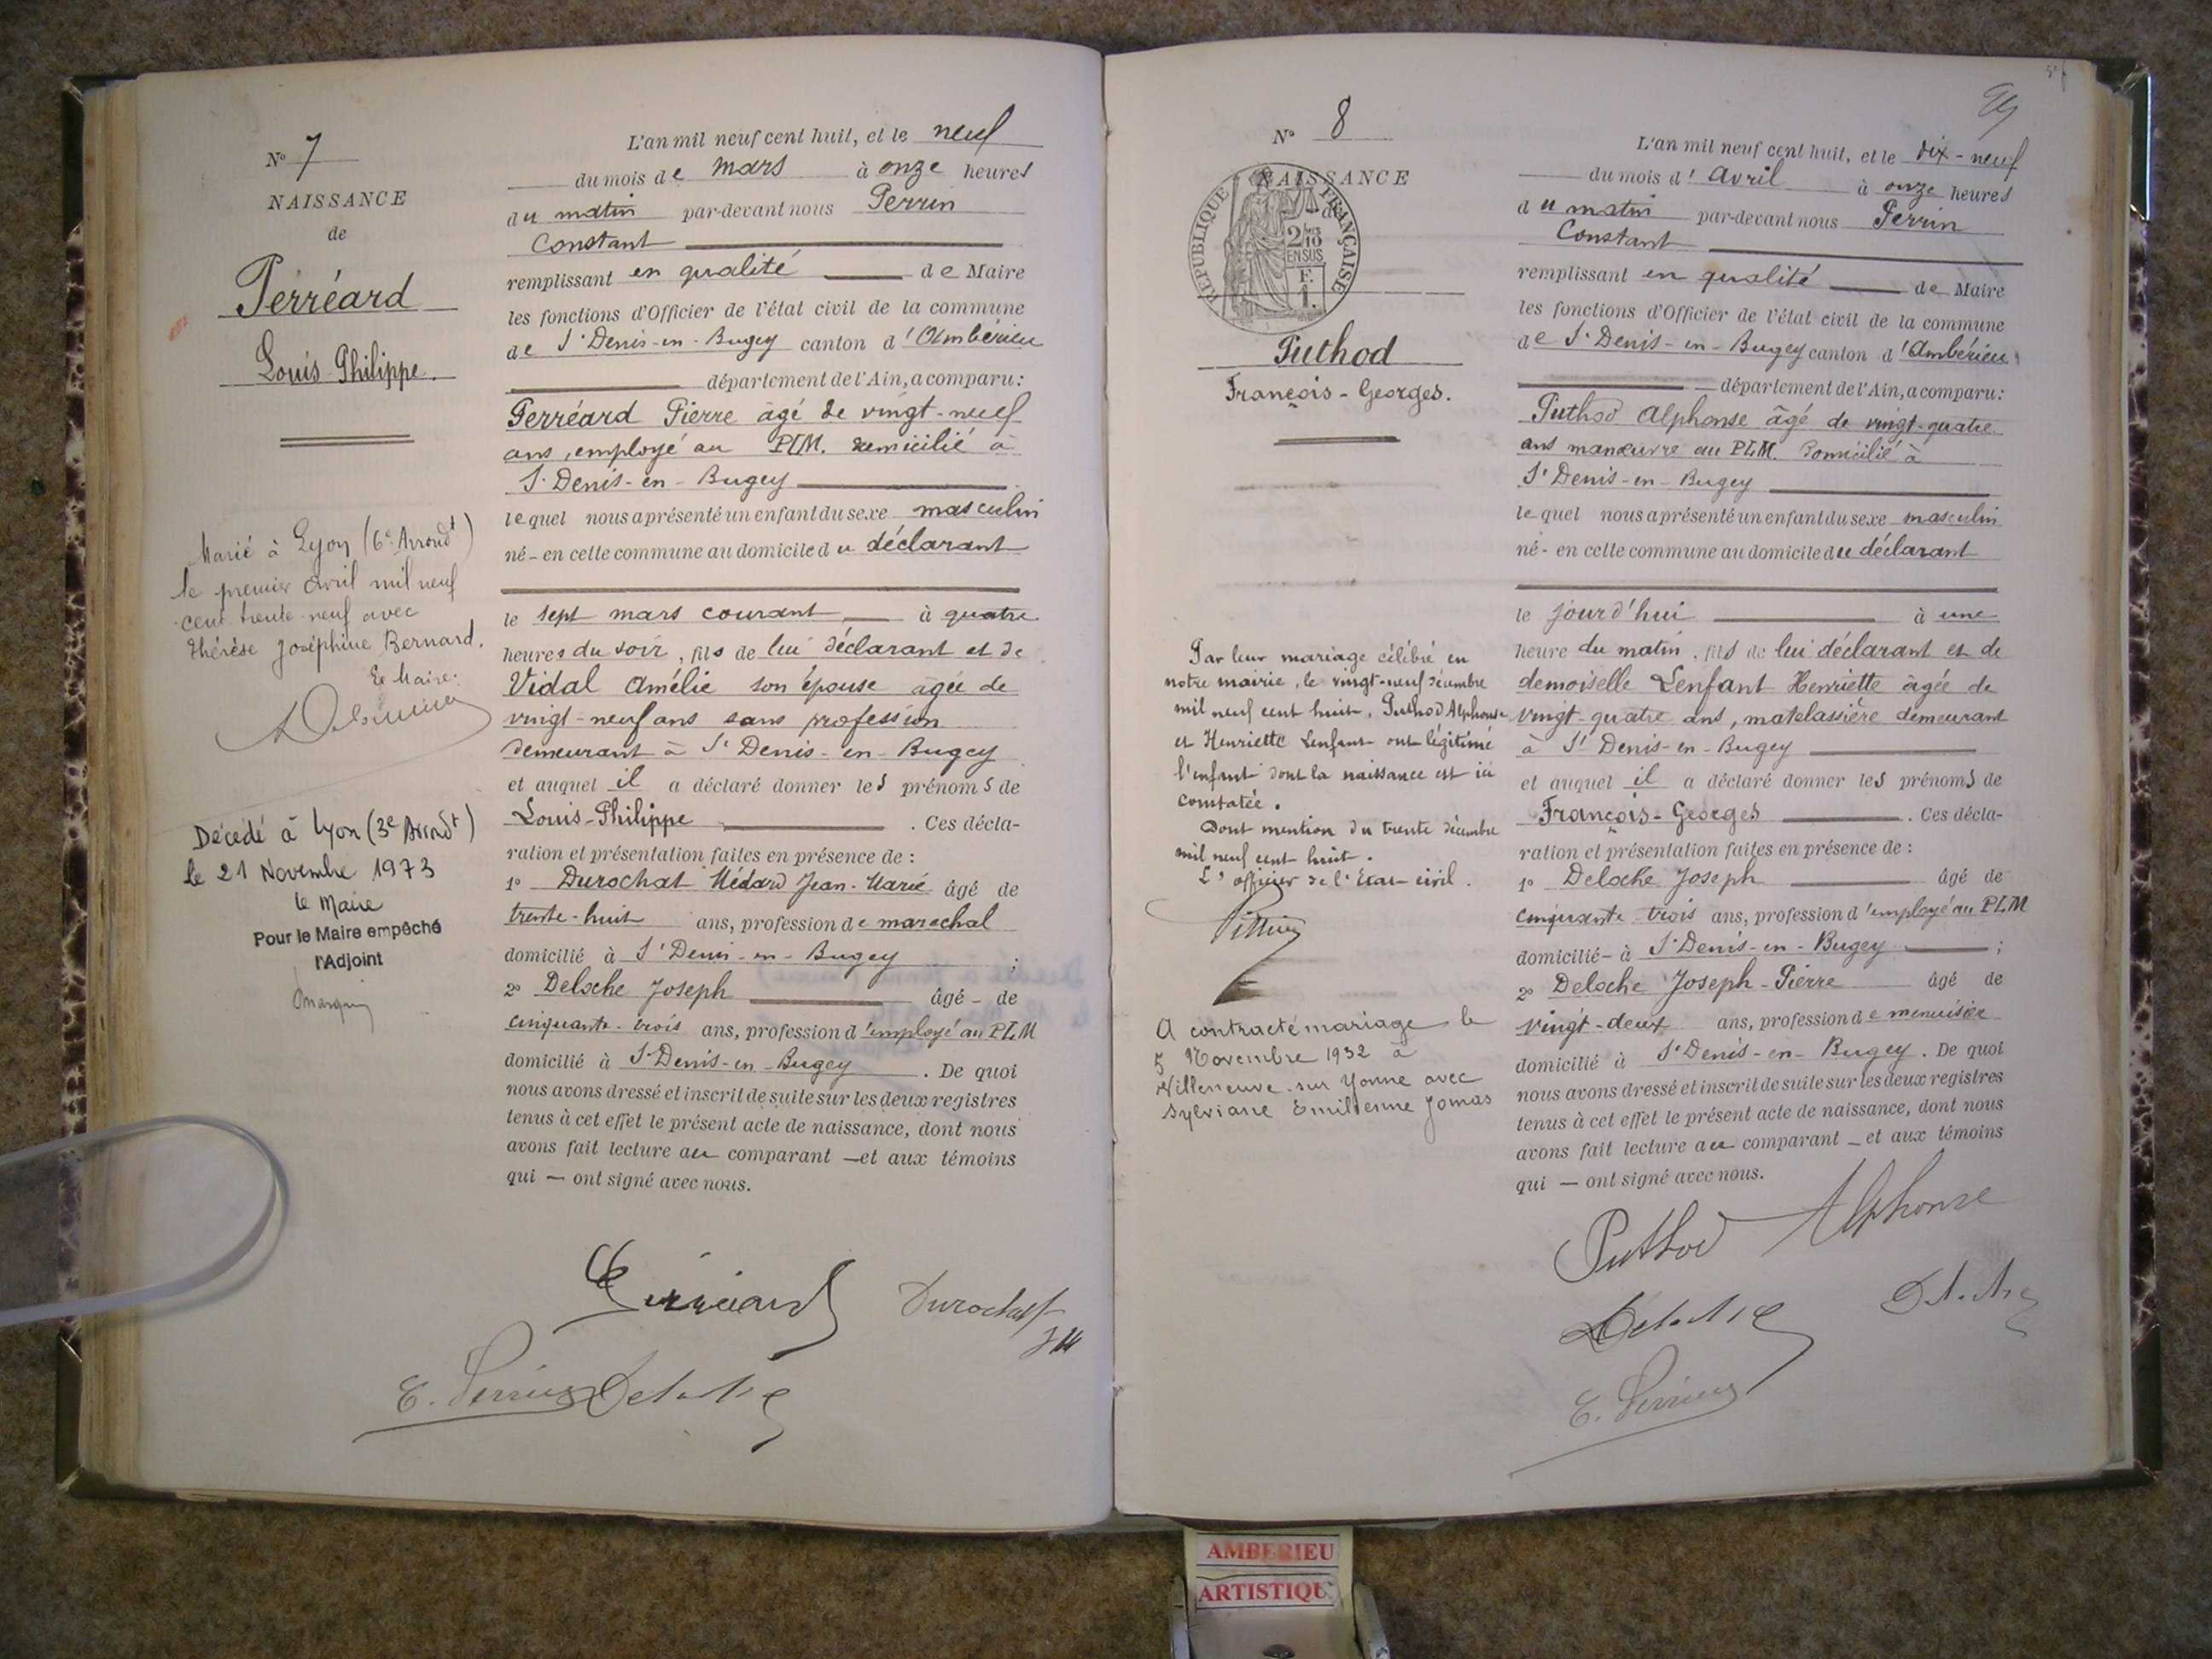 N° 7
NAISSANCE
de
Perréard
Louis-Philippe.
Marié à Lyon (6e Arrondt)
le premier avril mil neuf
cent trente-neuf avec
Thérèse Joséphine Bernard.
Le Maire:
Décédé à Lyon (3e Arrondt)
le 21 Novembre 1973
le Maire
Pour le Maire empêché
l'Adjoint
L'an mil neuf cent huit, et le neuf
du mois de mars à onze heures
du matin par-devant nous Perrin
Constant
remplissant en qualité de Maire
les fonctions d'Officier de l'état civil de la commune
de St Denis-en-Bugey canton d'Ambérieu
département de l'Ain, a comparu:
Perréard Pierre âgé de vingt-neuf
ans, employé au PLM. domicilié à
St Denis-en-Bugey
lequel nous a présenté un enfant du sexe masculin
né - en cette commune au domicile du déclarant
le sept mars courant à quatre
heures du soir, fils de lui déclarant et de
Vidal Amélie son épouse âgée de
vingt-neuf ans sans profession
demeurant à St Denis-en-Bugey
et auquel il a déclaré donner les prénoms de
Louis-Philippe. Ces décla-
ration et présentation faites en présence de :
1° Durochat Médard Jean-Marie âgé de
trente-huit ans, profession de marechal
domicilié à St Denis-en-Bugey ;
2° Deloche Joseph âgé - de
cinquante-trois ans, profession d'employé au PLM
domicilié à St Denis-en-Bugey. De quoi
nous avons dressé et inscrit de suite sur les deux registres
tenus à cet effet le présent acte de naissance, dont nous
avons fait lecture au comparant - et aux témoins
qui — ont signé avec nous.
Perréard Durochat
JM
E. Perrin Deloche
N° 8
NAISSANCE
de
RÉPUBLIQUE FRANÇAISE
2/10
EN SUS
F.
1.
Puthod
François-Georges.
Par leur mariage célébré en
notre mairie, le vingt-neuf décembre
mil neuf cent huit, Puthod Alphonse
et Henriette Lenfant ont légitimé
l'enfant dont la naissance est ici
constatée.
Dont mention du trente décembre
mil neuf cent huit.
L'officier de l'Etat-civil.
A contracté mariage le
5 Novembre 1932 à
Villeneuve-sur-Yonne avec
Sylviane Emilienne Jomas
L'an mil neuf cent huit, et le dix-neuf
du mois d'avril à onze heures
du matin par-devant nous Perrin
Constant
remplissant en qualité de Maire
les fonctions d'Officier de l'état civil de la commune
de St Denis-en-Bugey canton d'Ambérieu
département de l'Ain, a comparu:
Puthod Alphonse âgé de vingt-quatre
ans manœuvre au PLM. domicilié à
St Denis-en-Bugey
lequel nous a présenté un enfant du sexe masculin
né - en cette commune au domicile du déclarant
le jourd'hui à une
heure du matin, fils de lui déclarant et de
demoiselle Lenfant Henriette âgée de
vingt-quatre ans, matelassière demeurant
à St Denis-en-Bugey
et auquel il a déclaré donner les prénoms de
François-Georges. Ces décla-
ration et présentation faites en présence de :
1° Deloche Joseph âgé de
cinquante trois ans, profession d'employé au PLM
domicilié - à St Denis-en-Bugey ;
2° Deloche Joseph-Pierre âgé de
vingt-deux ans, profession de menuisier
domicilié à St Denis-en-Bugey. De quoi
nous avons dressé et inscrit de suite sur les deux registres
tenus à cet effet le présent acte de naissance, dont nous
avons fait lecture au comparant - et aux témoins
qui — ont signé avec nous.
Puthod Alphonse
Deloche Deloche
E. Perrin
AMBERIEU
ARTISTIQU